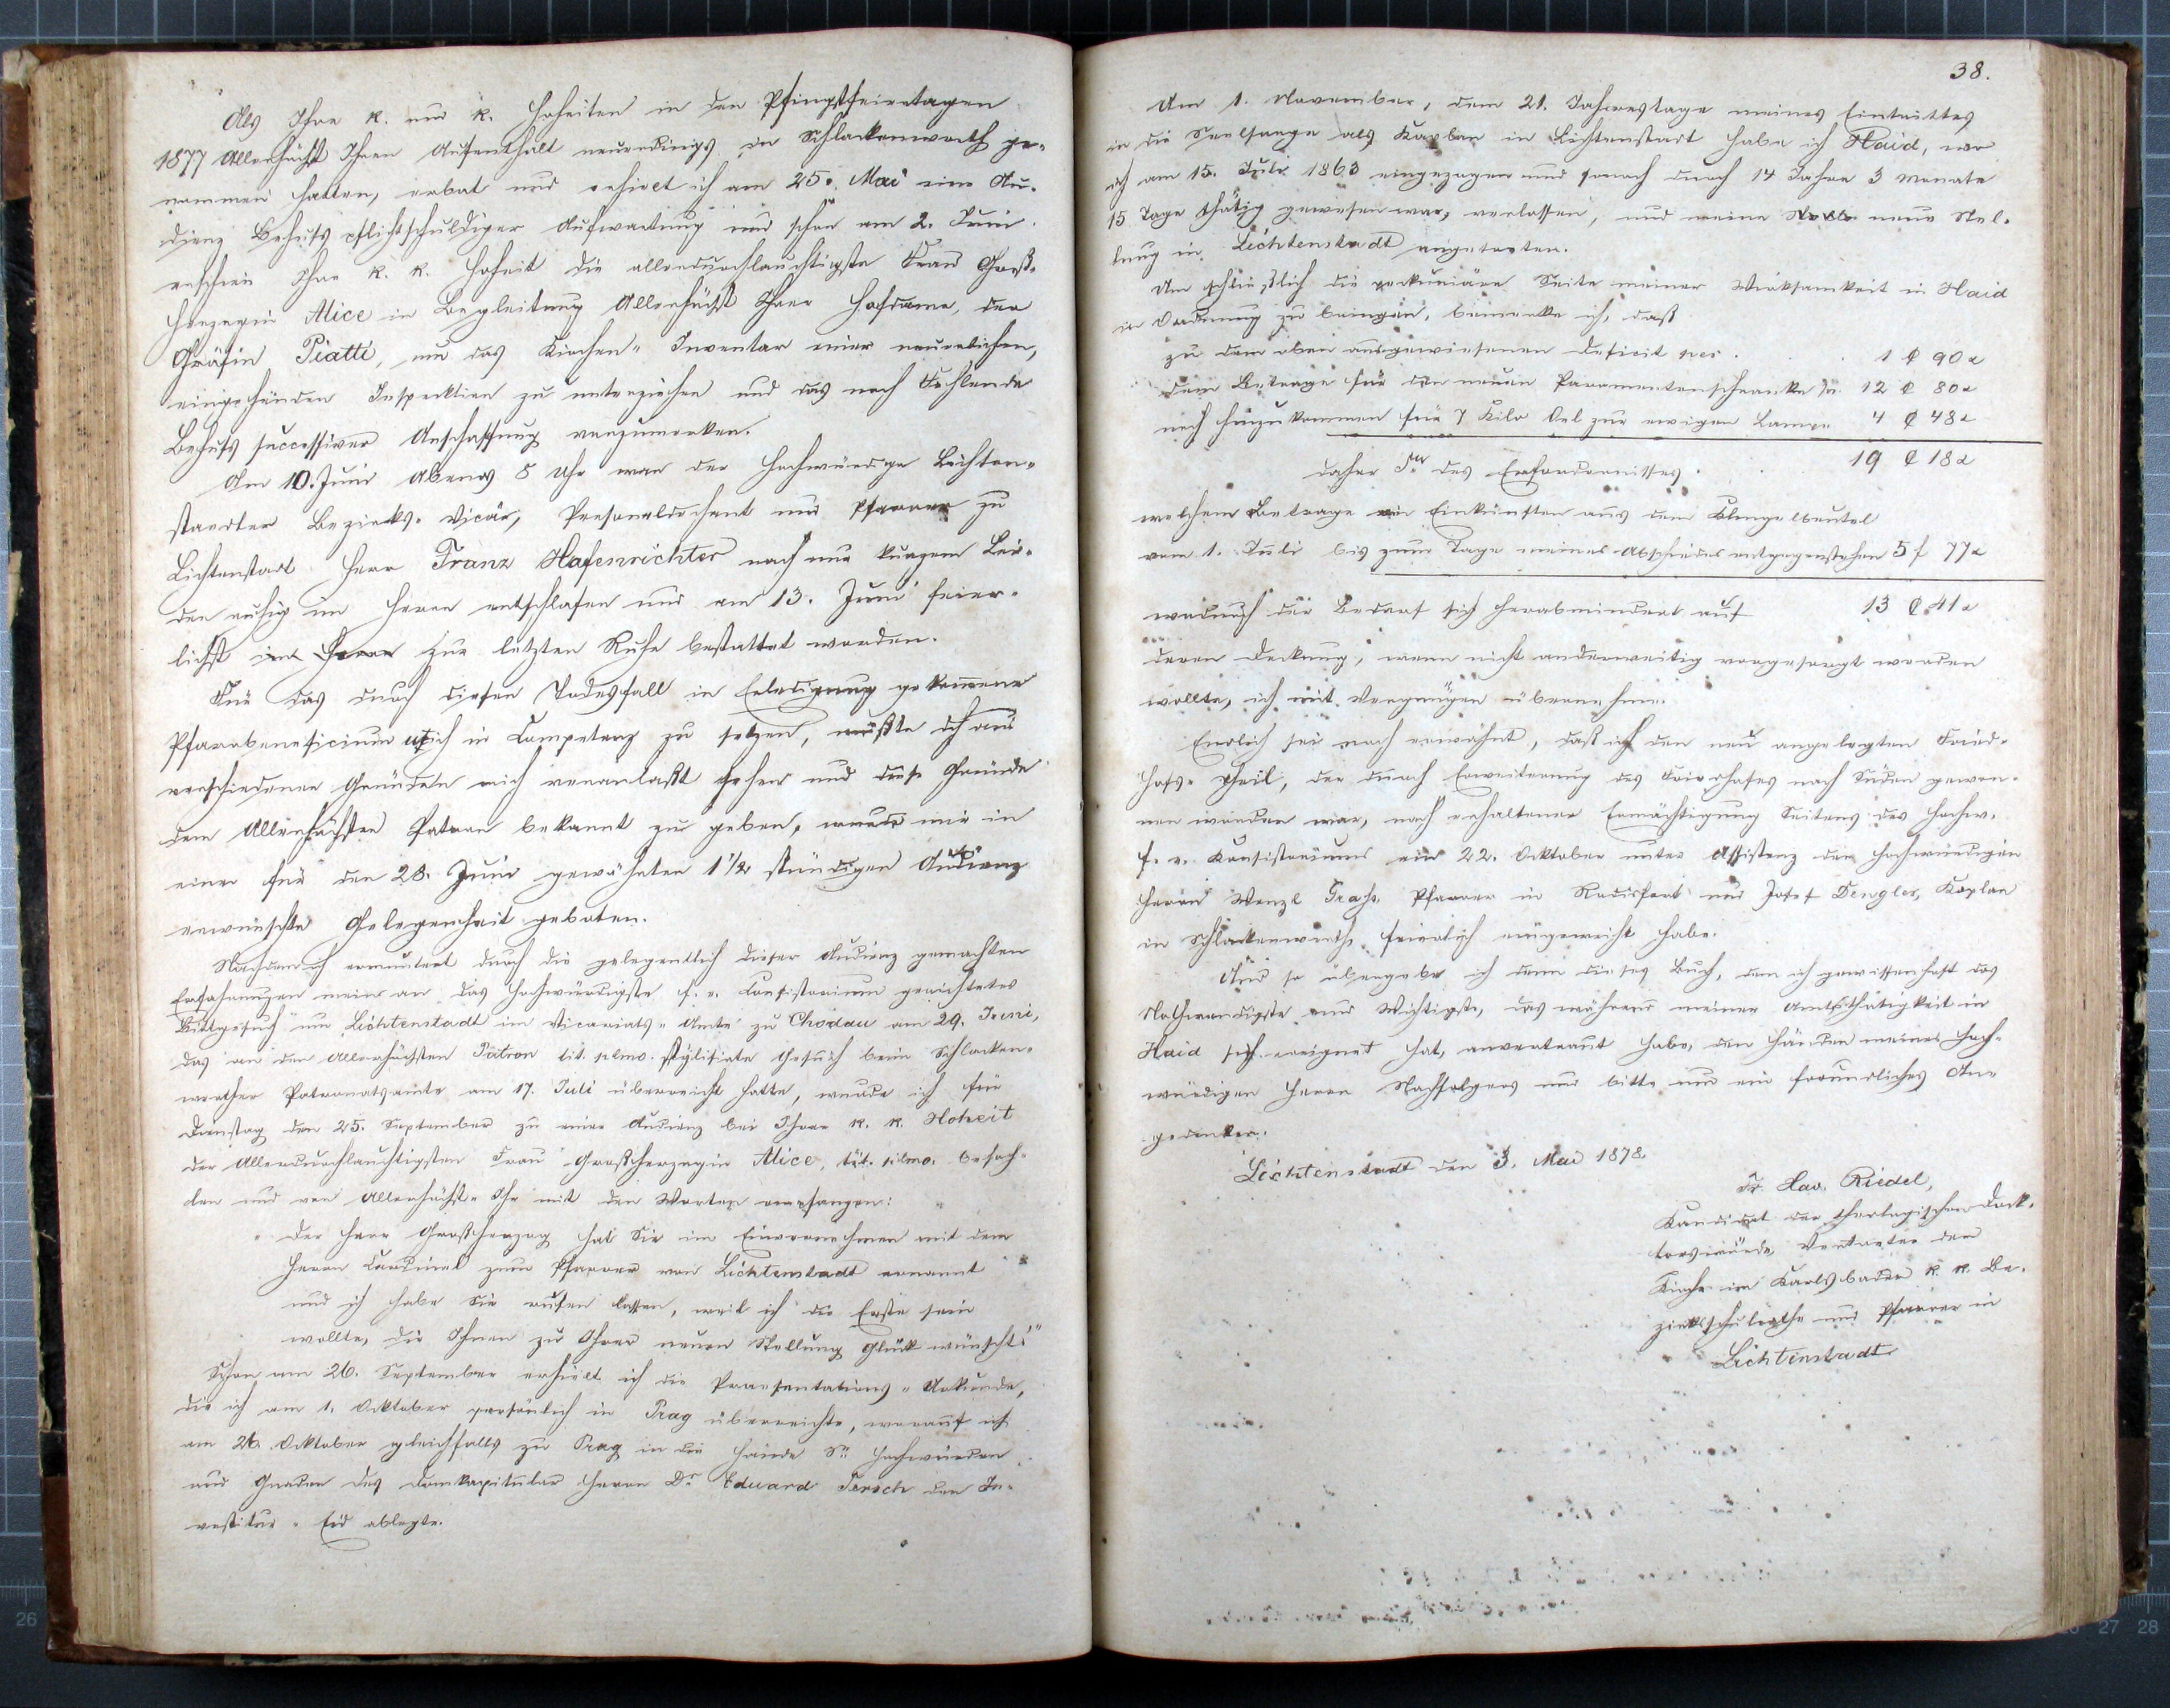 Als Ihre k. und k. Hoheiten in den Pfingstfeiertagen
1877 Allerhöchst Ihren Aufenthalt neuerdings in Schlackenwerth ge-
nommen hatten, erbat und erhielt ich am 25. Mai eine Au-
dienz Behufs pflichtschuldiger Aufwartung und schon am 2. Juni
erschien Ihre k. k. Hoheit die allerdurchlauchtigste Frau Groß-
herzogin Alice in Begleitung Allerhöchst Ihrer Hofdame, der
Gräfin Piatti, um das Kirchen-Inventar einer neuerlichen,
eingehenden Inspektion zu unterziehen und das noch Fehlende
Behufs successiver Anschaffung vorzumerken.
Am 10. Juni Abends 8 Uhr war der hochwürdige Lichten-
stadter Bezirks-Vicär, Personaldechant und Pfarrer zu
Lichtenstadt Herr Franz Hafenrichter nach nur kurzem Lei-
den ruhig im Herrn entschlafen und am 13. Juni feier-
lichst im Herrn zur letzten Ruhe bestattet worden.
Für das durch diesen Todesfall in Erledigung gekommene
Pfarrbeneficium mich in Competenz zu setzen, mußte ich aus
verschiedenen Gründen mich veranlaßt sehen und diese Gründe
dem Allerhöchsten Patron bekannt zu geben, wurde mir in
einer für den 28. Juni gewährten 1 1/2 stündigen Audienz
erwünschte Gelegenheit geboten.
Nachdem ich ermuntert durch die gelegentlich dieser Audienz gemachten
Erfahrungen mein an das hochwürdigste f. e. Consistorium gerichtetes
Bittgesuch um Lichtenstadt im Vicariats-Amte zu Chodau am 29. Juni,
das an den Allerhöchsten Patron tit. plmo. stylisirte Gesuch beim Schlacken-
werther Patronatsamte am 17. Juli überreicht hatte, wurde ich für
Dienstag den 25. September zu einer Audienz bei Ihrer k. k. Hoheit
der Allerdurchlauchtigsten Frau Großherzogin Alice, tit. plmo. befoh-
len und von Allerhöchst-Ihr mit den Worten empfangen:
"Der Herr Großherzog hat Sie im Einvernehmen mit dem
Herrn Cardinal zum Pfarrer von Lichtenstadt ernannt
und ich habe Sie rufen lassen, weil ich die Erste sein
wollte, die Ihnen zu Ihrer neuen Stellung Glück wünscht."
Schon am 26. September erhielt ich die Praesentations-Urkunde,
die ich am 1. Oktober persönlich in Prag überreichte, worauf ich
am 26. Oktober gleichfalls zu Prag in die Hände Sr. Hochwürden
und Gnaden des Domkapitular Herrn Dr. Eduard Tersch den In-
vestitur-Eid ablegte.
38.
Am 1. November, dem 21. Jahrestage meines Eintrittes
in die Seelsorge als Kaplan in Lichtenstadt habe ich Haid, wo
ich am 15. Juli 1863 eingezogen und sonach durch 14 Jahre 3 Monate
15 Tage thätig gewesen war, verlassen, und meine neue Stel-
lung in Lichtenstadt angetreten.
Um schließlich die pekuniäre Seite meiner Wirksamkeit in Haid
in Ordnung zu bringen, bemerke ich, daß
zu dem oben ausgewiesenen Deficit per . . 1 f 90 x
dem Betrage für den neuen Paramentenschranke pr. 12 f 80 x
noch hinzukommen für 7 Kilo Oel zur ewigen Lampe 4 f 48 x
daher Sa des Erfordernisses . . 19 f 18 x
welchem Betrage an Einkünften aus dem Klingelbeutel
vom 1. Juli bis zum Tage meines Abschiedes entgegenstehen 5 f 77 x
wodurch der Bedarf sich herabmindert auf 13 f 41 x
deren Deckung, wenn nicht anderweitig vorgesorgt werden
wollte, ich mit Vergnügen übernehme.
Endlich sei noch erwähnt, daß ich den neu angelegten Fried-
hofs-Theil, der durch Erweiterung des Friedhofes nach Süden gewon-
nen worden war, nach erhaltener Ermächtigung Seitens des hochw.
f. e. Konsistoriums am 22. Oktober unter Assistenz der hochwürdigen
Herrn Wenzl Pfarrer in Rodisfort und Josef Dengler, Kaplan
in Schlackenwerth feierlich eingeweiht habe.
Und so übergebe ich denn dieses Buch, dem ich gewissenhaft das
Nothwendigste und Wichtigste, das während meiner Amtsthätigkeit in
Haid sich ereignet hat, anvertraut habe, den Händen meines hoch-
würdigen Herrn Nachfolgers und bitte um ein freundliches An-
gedenken.
Lichtenstadt den 3. Mai 1878.
Fr. Xav. Riedel,
Kandidat der theologischen Dock-
torswürde, Vertreter der
Kirche im Karlsbader k. k. Be-
zirksschulrathe und Pfarrer in
Lichtenstadt